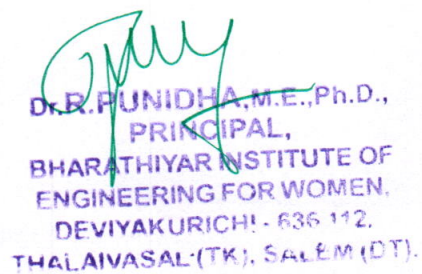 Dr.R.PUNIDHA,M.E.,Ph.D.,
PRINCIPAL,
BHARATHIYAR INSTITUTE OF
ENGINEERING FOR WOMEN,
DEVIYAKURICHI - 636 112,
THALAIVASAL-(TK), SALEM (DT).